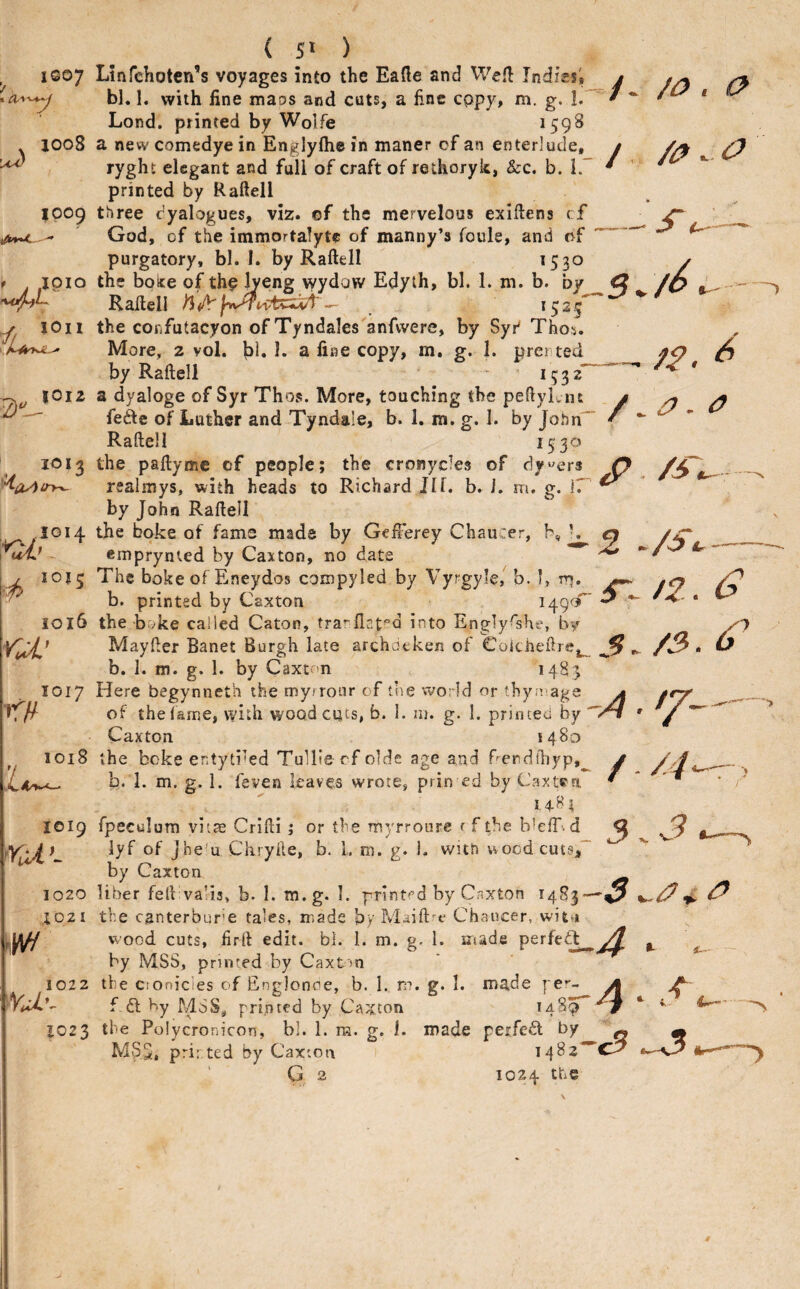 ( 51 )
1007 Linſchoten's voyages into the Eaſte and Weſt Indies, 1 - 10 . 0
bl. l. with fine maps and cuts, a fine copy, m. g. l.
Lond. printed by Wolfe 1598
1008 a new comedye in Englyſhe in maner of an enterlude, 1 10 - 0
ryght elegant and full of craft of rethoryk, &c. b. l.
printed by Raſtell
1009 three dyalogues, viz. of the mervelous exiſtens of
God, of the immortalyte of manny's ſoule, and of 5
purgatory, bl. l. by Raſtell 1530
1010 the boke of the lyeng wydow Edyth, bl. l. m. b. by 3 . 16
Raſtell 1525
1011 the confutacyon of Tyndales anſwere, by Syr Thos.
More, 2 vol. bl. l. a fine copy, m. g. l. prented 12 . 6
by Raſtell 1532
1012 a dyaloge of Syr Thos. More, touching the peſtylent
ſecte of Luther and Tyndale, b. l. m. g. l. by John 1 - 0 - 0
Raſtell 1530
1013 the paſtyme of people; the cronycles of dyvers
realmys, with heads to Richard III. b. l. m. g. l. 8 . 15
by John Raſtell
1014 the boke of fame made by Gefferey Chaucer, b. l. 2 - 15
emprynted by Caxton, no date
1015 The boke of Eneydos compyled by Vyrgyle, b. l. m.
b. printed by Caxton 1490 5 - 12 . 6
1016 the boke called Caton, tranſlated into Englyſshe, by
Mayſter Banet Burgh late archdeken of Colcheſtre, 3 - 13 . 6
b. l. m. g. l. by Caxton 1483
1017 Here begynneth the myrrour of the world or thymage
of the ſame, with wood cuts, b. l. m. g. l. printed by 4 . 7
Caxton 1480
1018 the boke entytled Tullie of olde age and frendſhyp, 1 . 14
b. l. m. g. l. ſeven leaves wrote, printed by Caxton
1481
1019 ſpeculum vitæ Criſti; or the myrroure of the bleſſed 3 . 3
lyf of Jheſu Chryſte, b. l. m. g. l. with wood cuts,
by Caxton
1020 liber feſtivalis, b. l. m. g. l. printed by Caxton 1483 3 . 0 . 0
1021 the canterburie tales, made by Maiſtre Chaucer, with
wood cuts, firſt edit. bl. l. m. g. l. made perfect 4
by MSS, printed by Caxton
1022 the cronicles of Englonde, b. l. m. g. l. made per-
fect by MSS, printed by Caxton 4 . 5
1023 the Polycronicon, bl. l. m. g. l. made perfect by
MSS, printed by Caxton 1482 3 . 3
G 2 1024 the